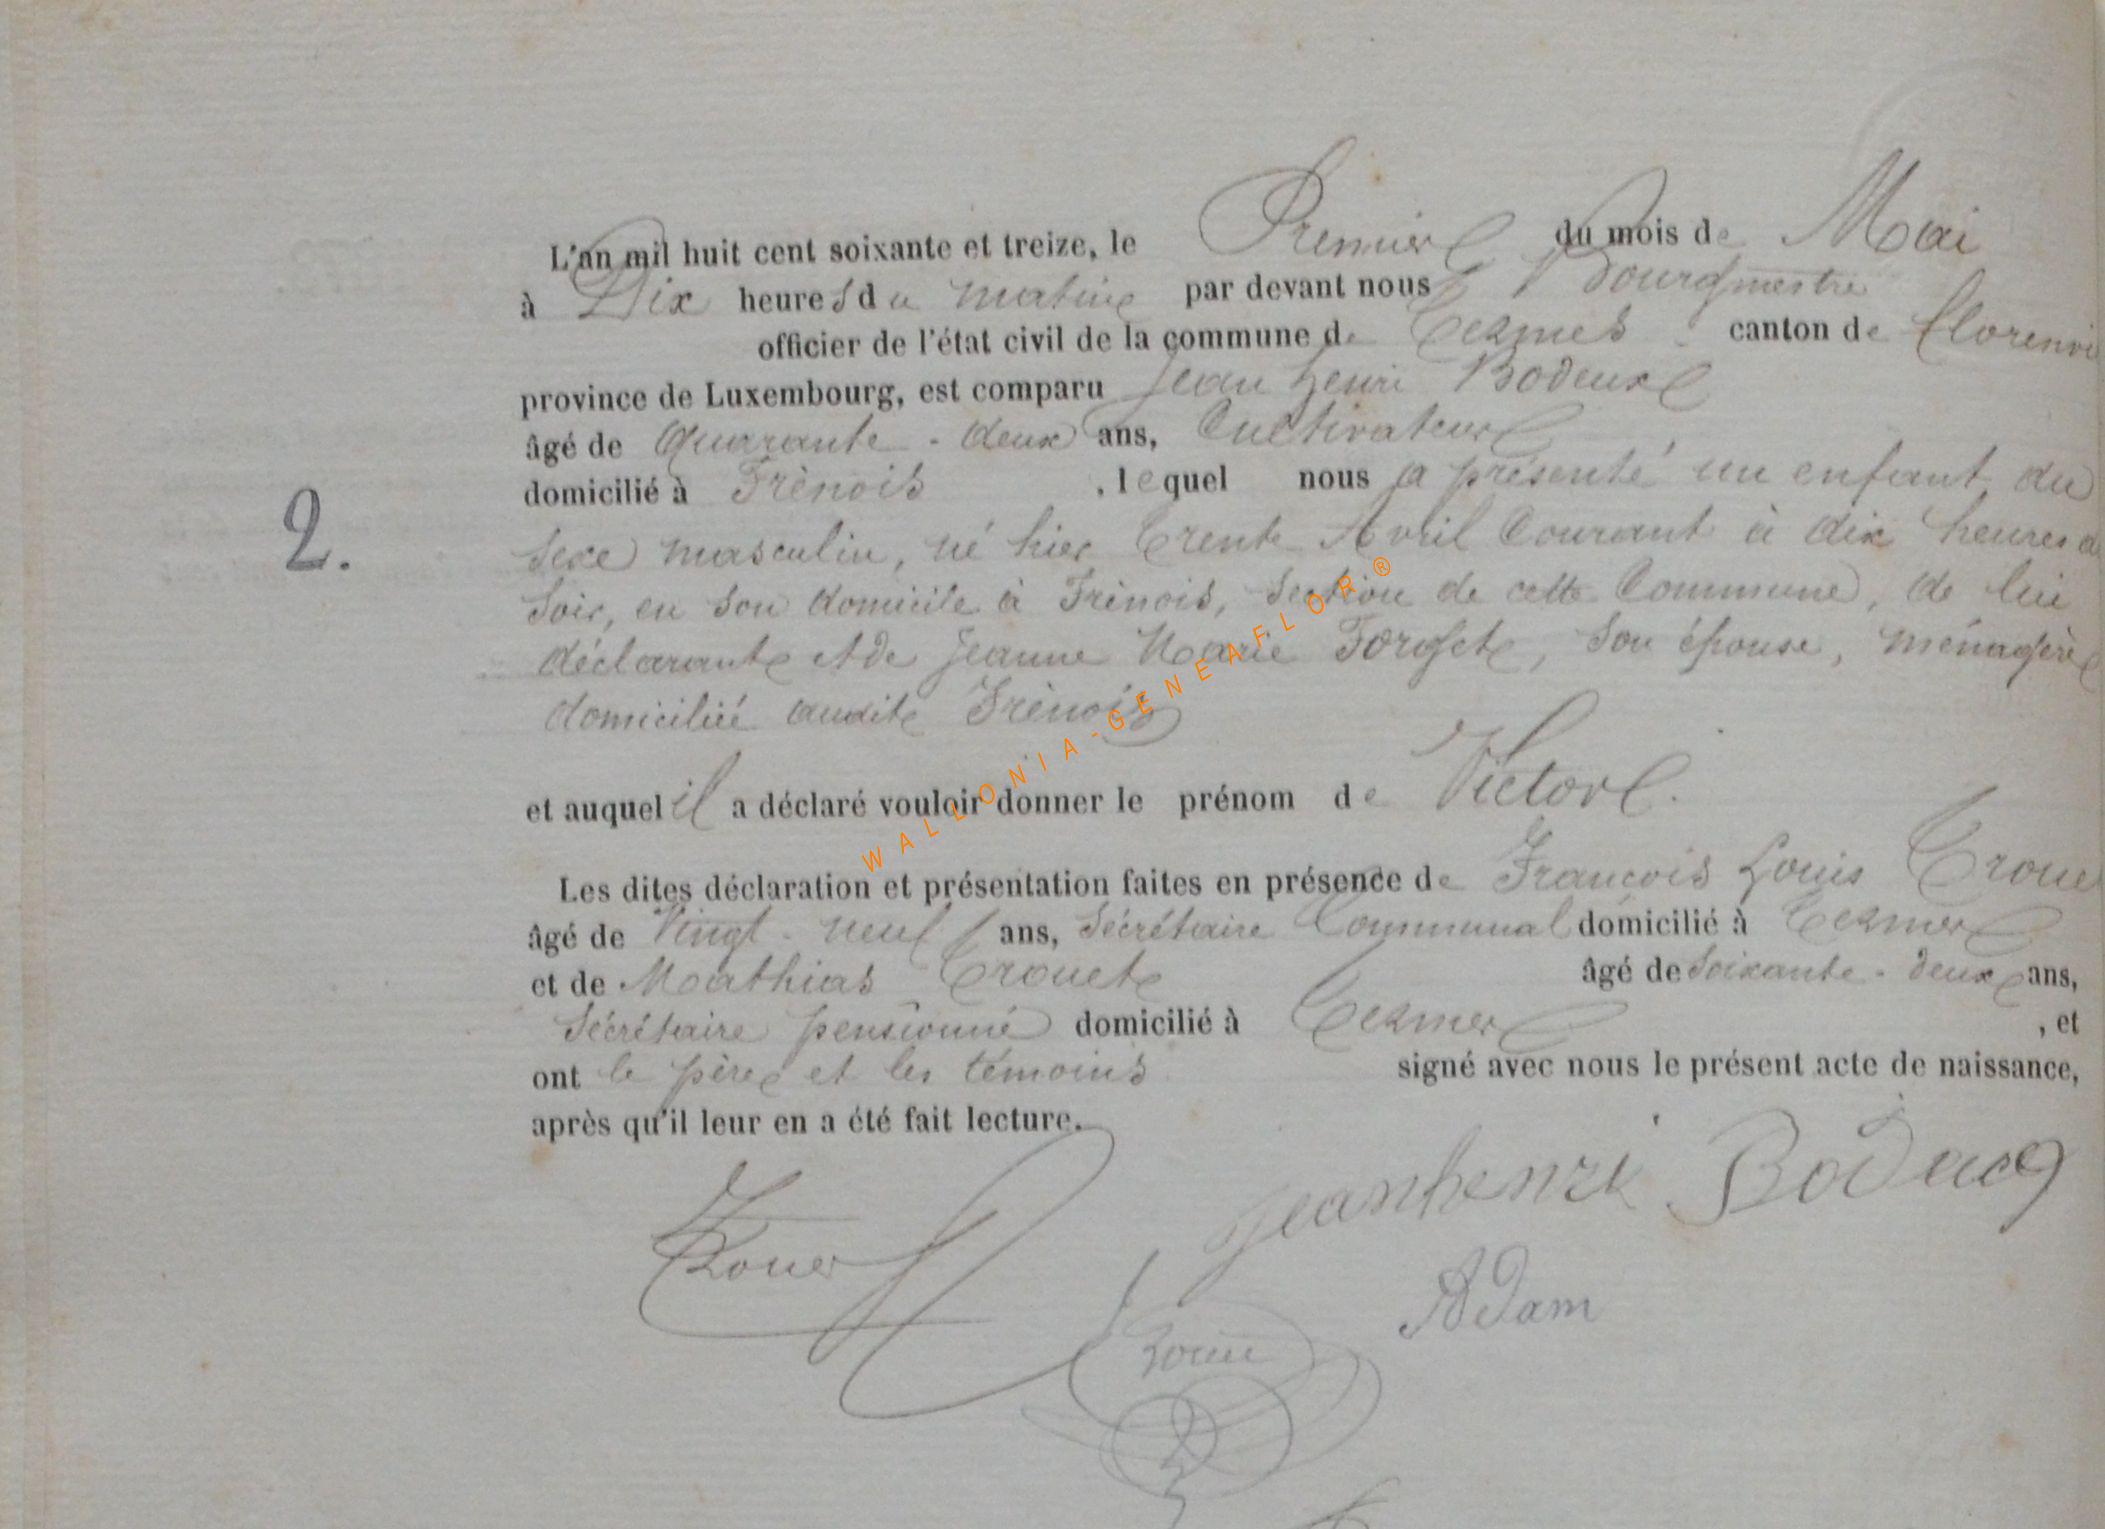 L'an mil huit cent soixante et treize, le Premier du mois de Mai
à Dix heures du matin par devant nous Bourgmestre
officier de l'état civil de la commune de Termes canton de Florenvi
province de Luxembourg, est comparu Jean henri Bodeux
âgé de Quarante-deux ans, Cultivateur
domicilié à Frènois , lequel nous a présenté un enfant du
2.
sexe masculin, né hier trente Avril Courant à dix heures d
soir, en son domicile à Frènois, section de cette Commune, de lui
déclarant et de Jeanne Marie Forget, son épouse, ménagère
domiciliée audit Frènois
et auquel il a déclaré vouloir donner le prénom de Victor.
WALLONIA-GENEAFLOR®
Les dites déclaration et présentation faites en présence de François Louis Troue
âgé de Vingt-neuf ans, Sécrétaire Communal domicilié à Termes
et de Mathias Trouet âgé de Soixante-deux ans,
Sécrétaire pensionné domicilié à Termes , et
ont le père et les témoins signé avec nous le présent acte de naissance,
après qu'il leur en a été fait lecture.
jeanhenri Bodeux
Adam